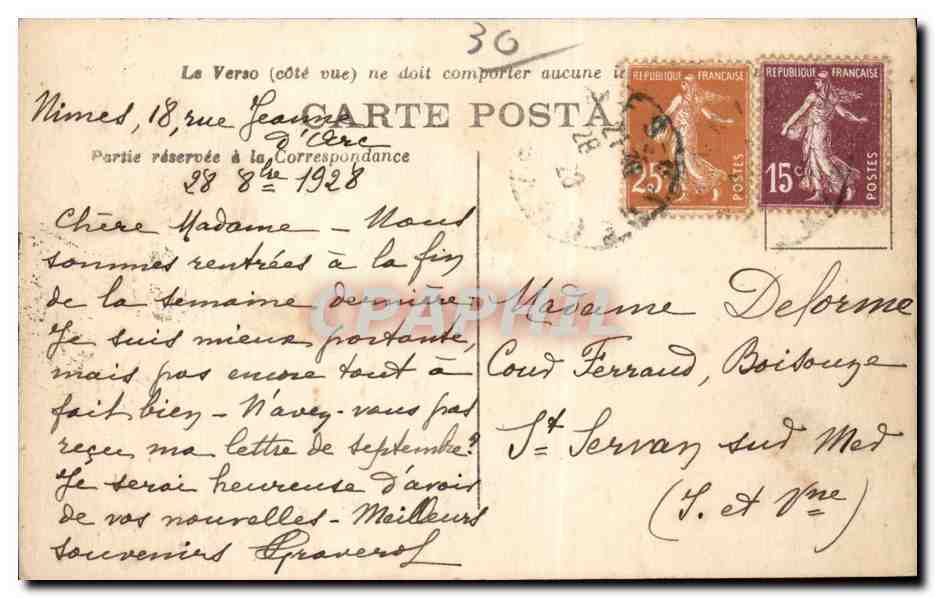 30
Le Verso (côté vue) ne doit comporter aucune
CARTE POSTA
Nimes, 18, rue Jeanne
d'Arc
Partie réservée à la Correspondance
28 8bre 1928
Chère Madame - Nous
sommes rentrées à la fin
de la semaine dernière.
Je suis mieux portante,
mais pas encore tout à
fait bien - N'avez-vous pas
reçu ma lettre de septembre?
Je serai heureuse d'avoir
de vos nouvelles - Meilleurs
souvenirs Graverol
REPUBLIQUE FRANÇAISE
25c
POSTES
REPUBLIQUE FRANÇAISE
15c
POSTES
Madame Delorme
Cour Ferraud, Boisouze
St Servan sur Mer
(I. et Vne)
CPAPHIL